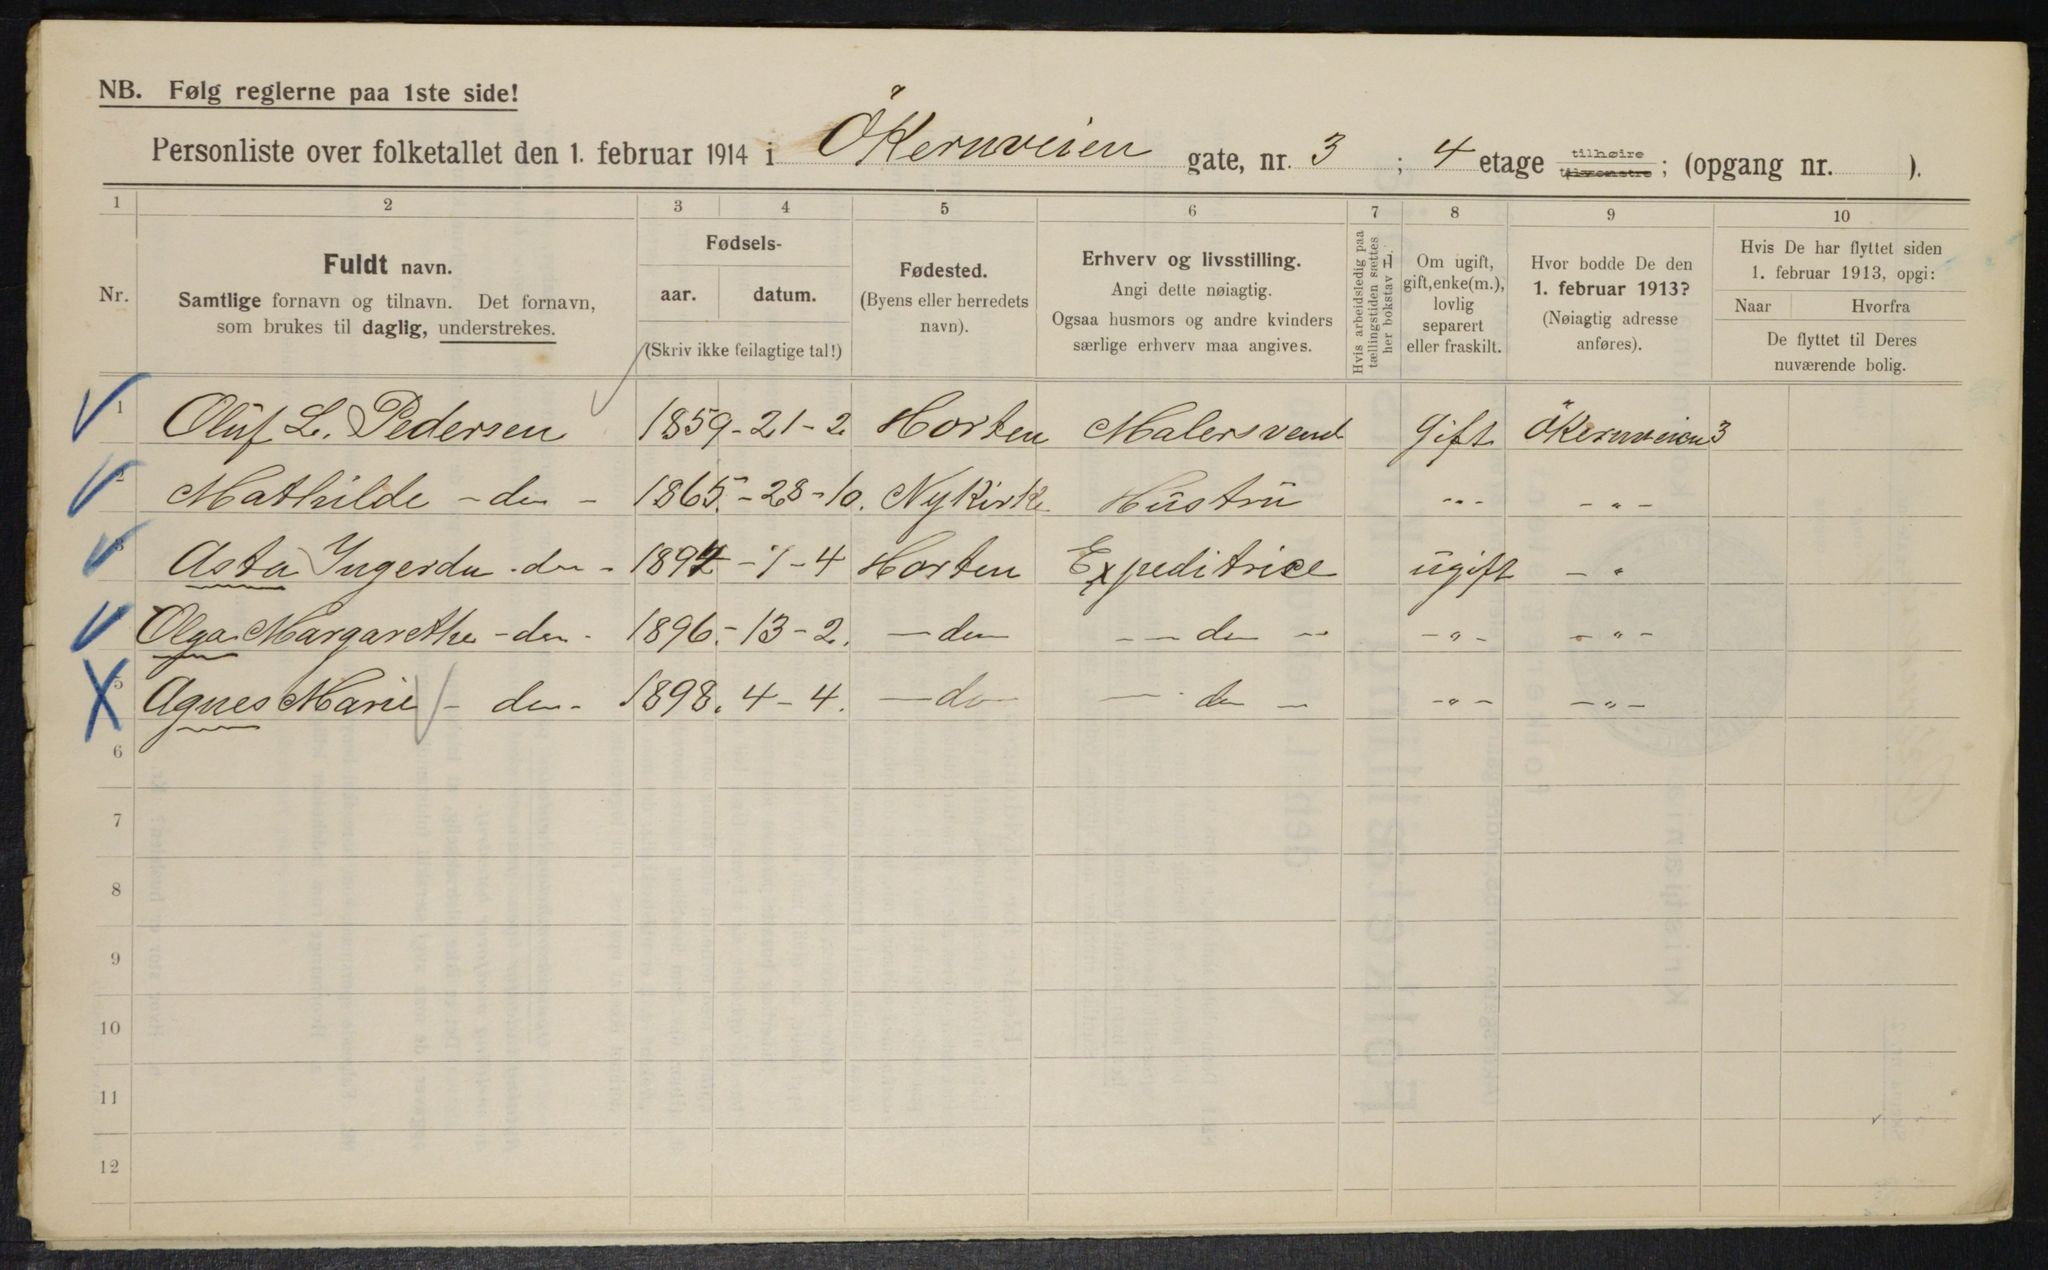 NB. Følg reglerne paa 1ste side!
Personliste over folketallet den 1. februar 1914 i Økernveien gate, nr. 3 ; 4 etage tilhøire ; (opgang nr. ).
1 2 3 4 5 6 7 8 9 10
Nr.
Fuldt navn.
Samtlige fornavn og tilnavn. Det fornavn,
som brukes til daglig, understrekes.
Fødsels-
aar. datum.
(Skriv ikke feilagtige tal!)
Fødested.
(Byens eller herredets
navn).
Erhverv og livsstilling.
Angi dette nøiagtig.
Ogsaa husmors og andre kvinders
særlige erhverv maa angives.
Hvis arbeidsledig paa
tællingstiden sættes
her bokstav
Om ugift,
gift, enke(m.),
lovlig
separert
eller fraskilt.
Hvor bodde De den
1. februar 1913?
(Nøiagtig adresse
anføres).
Hvis De har flyttet siden
1. februar 1913, opgi:
Naar Hvorfra
De flyttet til Deres
nuværende bolig.
1 Oluf L. Pedersen 1859 - 21 - 2 Horten Malersvend Gift Økernveien 3
2 Mathilde - do - 1865. - 28 - 10. Nykirke Hustru - " - - " -
3 Asta Ingerda - do - 1894 - 7 - 4 Horten Expeditrice ugift - "
4 Olga Margarethe - do - 1896. - 13 - 2. - do - - do - - " - - " -
5 Agnes Marie - do - 1898. 4 - 4. - do - - do - - " - - " -
6
7
8
9
10
11
12